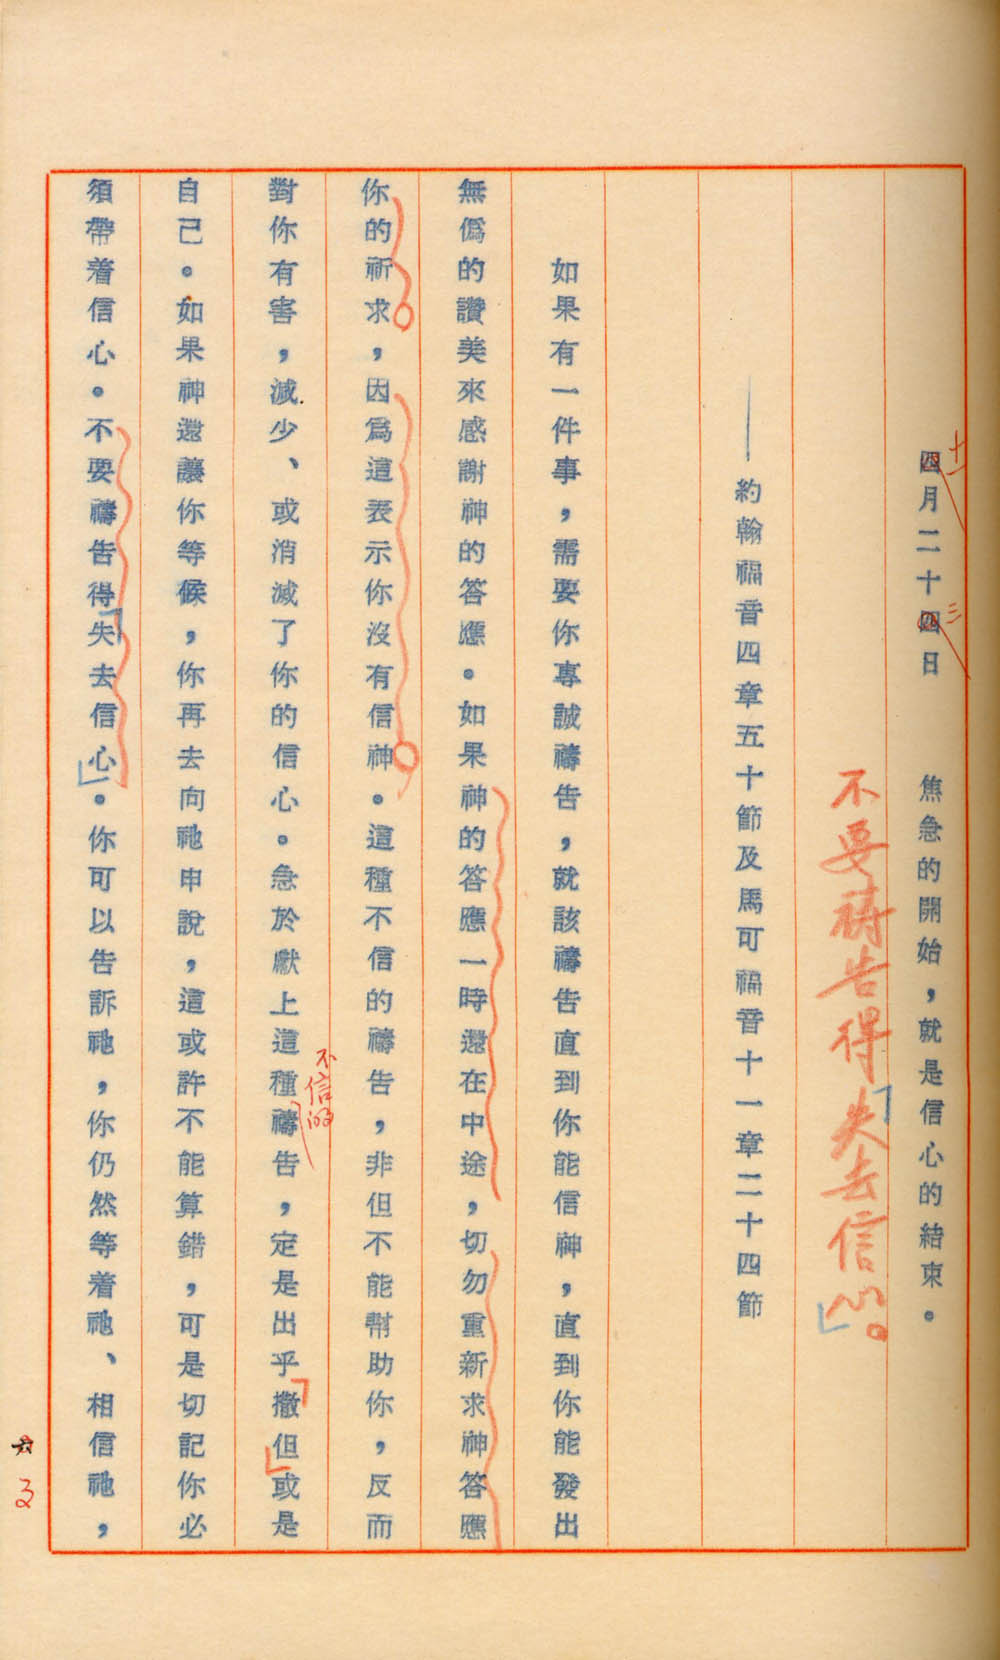 四月二十四日　　焦急的開始，就是信心的結束。
十一
三
不要禱告得「失去信心」。
——約翰福音四章五十節及馬可福音十一章二十四節
如果有一件事，需要你專誠禱告，就該禱告直到你能信神，直到你能發出
無僞的讚美來感謝神的答應。如果神的答應一時還在中途，切勿重新求神答應
你的祈求，因爲這表示你沒有信神。這種不信的禱告，非但不能幫助你，反而
不信的
對你有害，減少、或消滅了你的信心。急於獻上這種禱告，定是出乎「撒但」或是
自己。如果神還讓你等候，你再去向祂申說，這或許不能算錯，可是切記你必
須帶着信心。不要禱告得「失去信心」。你可以告訴祂，你仍然等着祂、相信祂，